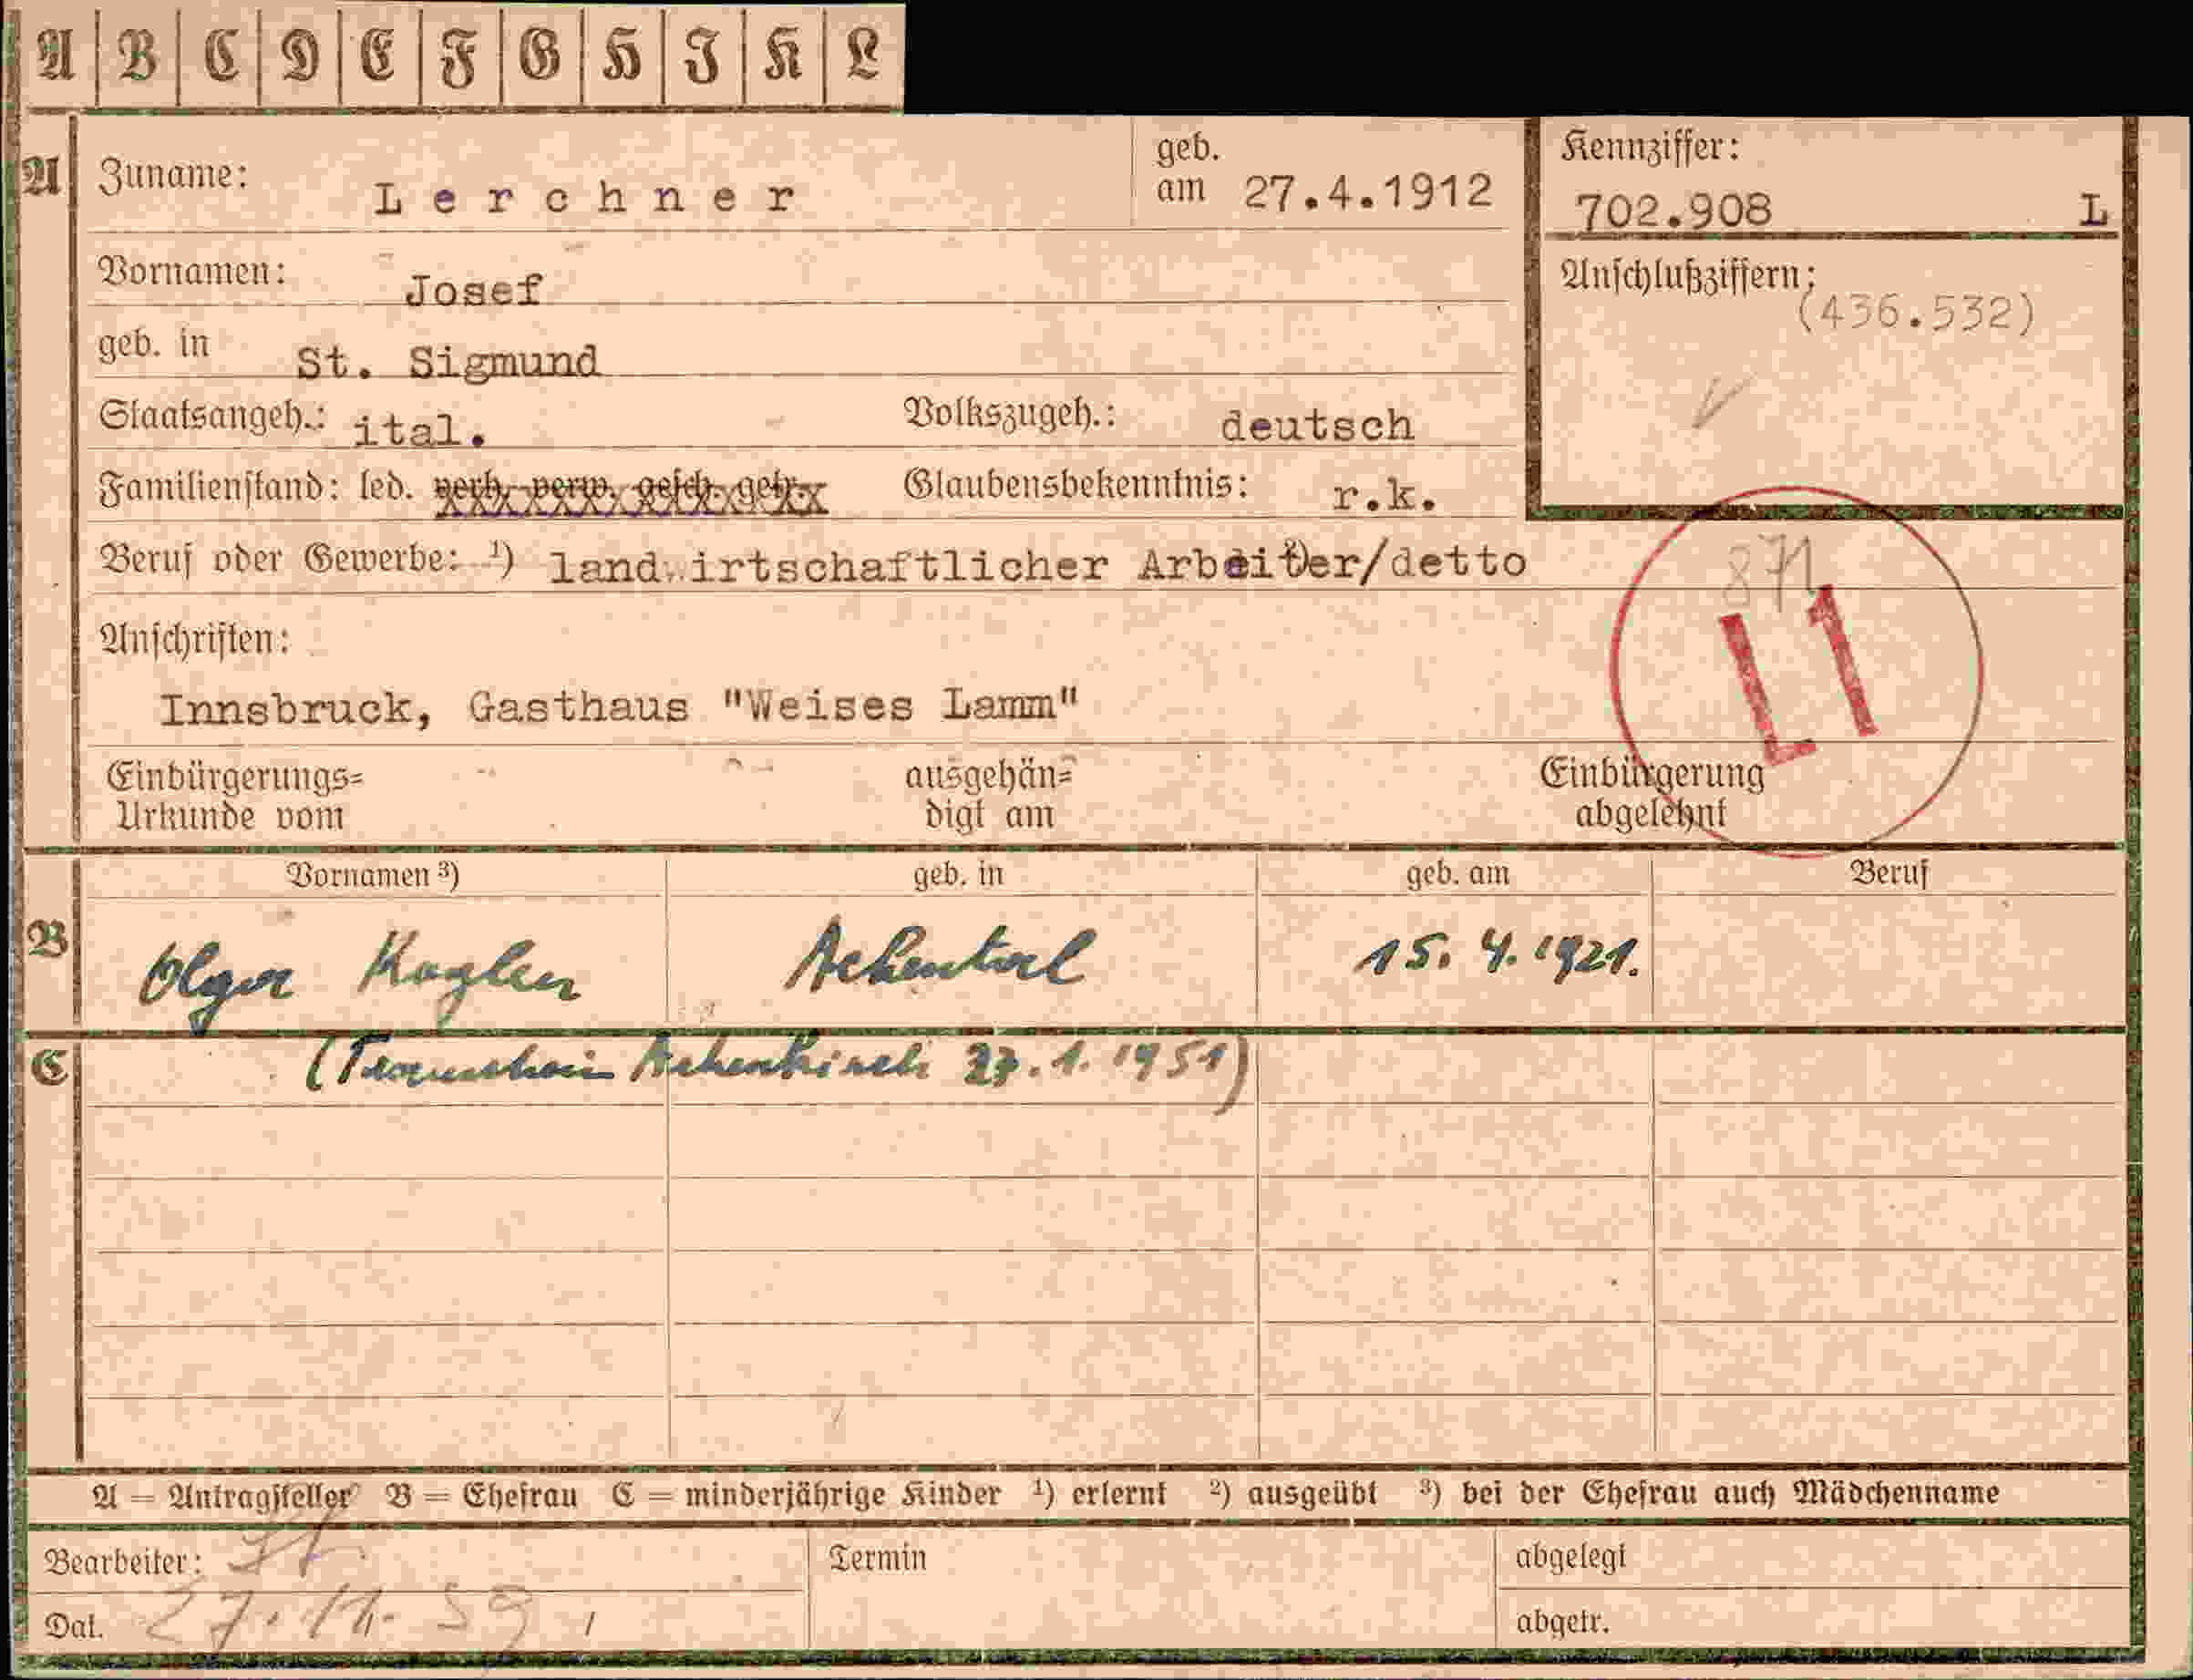 A B C D E F G H J K L
A Zuname: Lerchner geb. am 27.4.1912
Kennziffer:
702.908 L
Vornamen: Josef
Anschlußziffern:
(436.532)
geb. in St. Sigmund
Staatsangeh.: ital. Volkszugeh.: deutsch
Familienstand: led. verh. verw. gesch. getr. Glaubensbekenntnis: r.k.
Beruf oder Gewerbe: ¹) landwirtschaftlicher Arbeiter/detto
871
L1
Anschriften:
Innsbruck, Gasthaus "Weises Lamm"
Einbürgerungs= ausgehän= Einbürgerung
Urkunde vom digt am abgelehnt
Vornamen ³) geb. in geb. am Beruf
B Olga Kogler Achental 15. 4. 1921.
C (Trauschein Achenkirch 27. 1. 1951)
A = Antragsteller B = Ehefrau C = minderjährige Kinder ¹) erlernt ²) ausgeübt ³) bei der Ehefrau auch Mädchenname
Bearbeiter: Termin abgelegt
Dat. 27. 11. 59 abgetr.